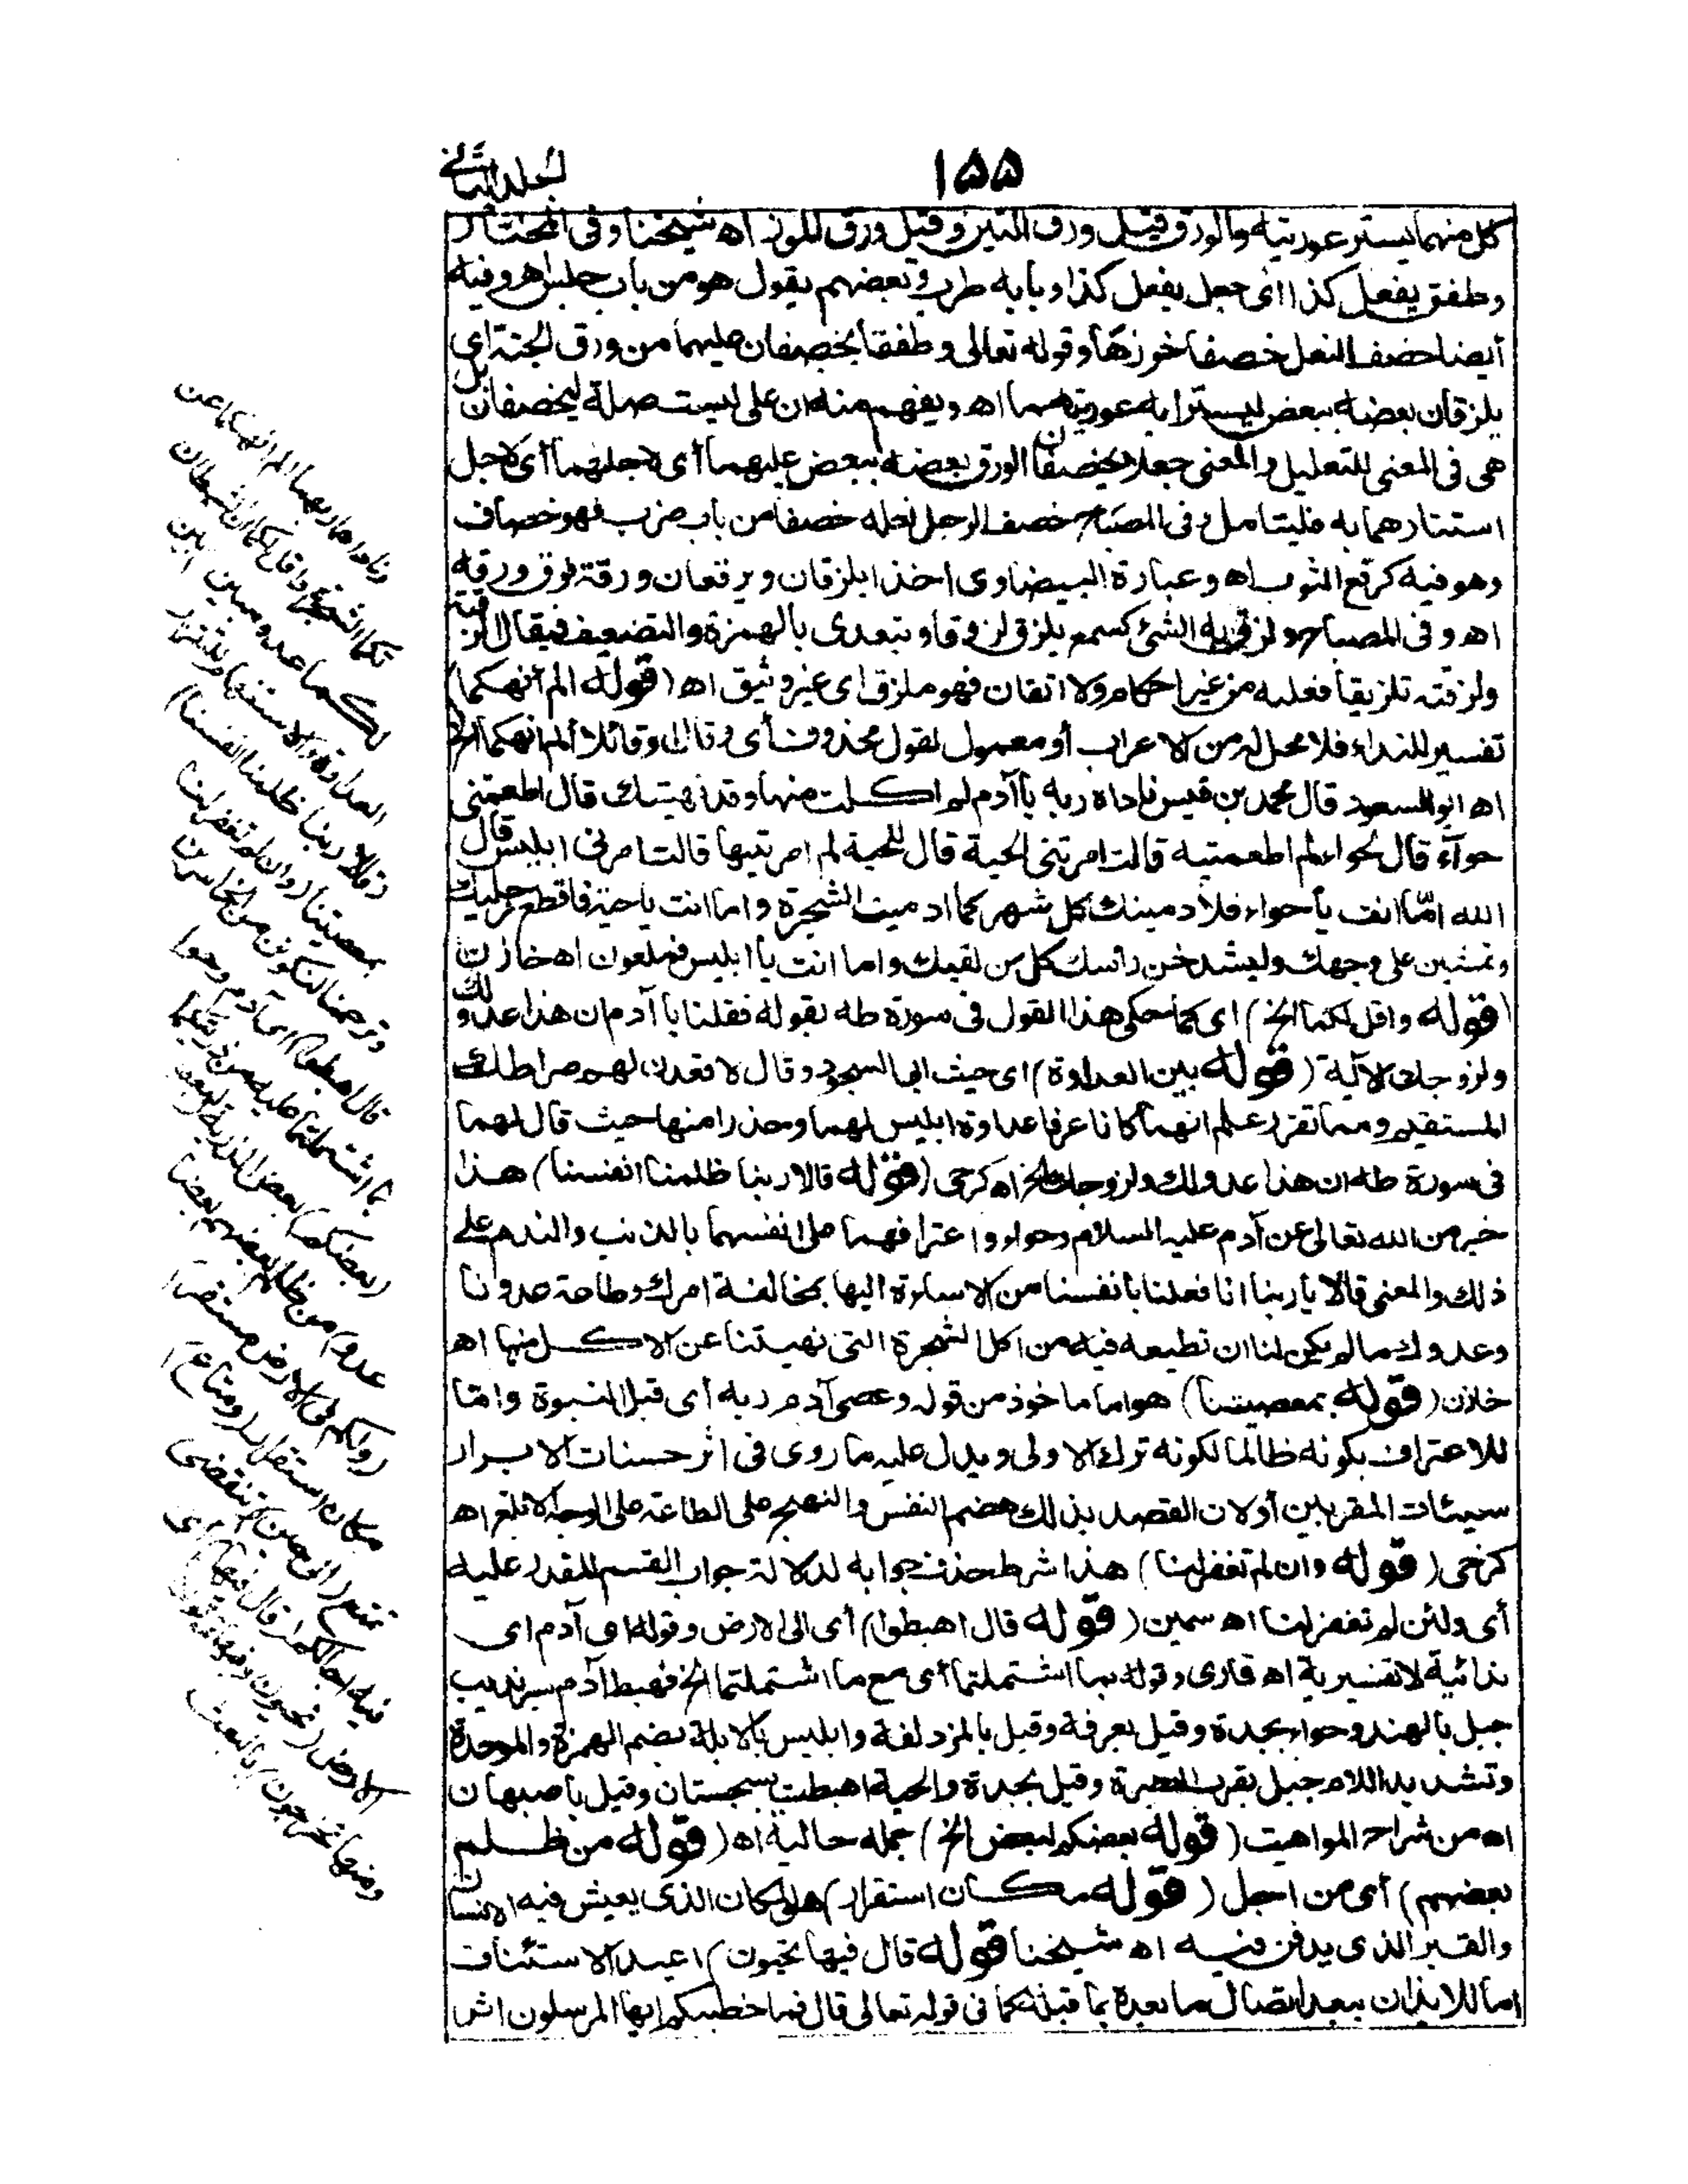 ١٥٥
المجلد الثاني
كل منهما يستر عورتيه والورق قيل ورق التين وقيل ورق الموز اه شيخنا وفى المختار
وطفق يفعل كذا اى جعل يفعل كذا وبابه طرب وبعضهم يقول هو من باب جلس اهـ وفيه
أيضا خصف النعل خصفا خرزها وقوله تعالى وطفقا يخصفان عليهما من ورق الجنة اى
يلزقان بعضه ببعض ليسترا به عورتهما اه ويفهم منه ان على ليست صلة ليخصفان بل
هى فى المعنى للتعليل والمعنى جعلا يخصفان الورق بعضه ببعض عليهما أى لاجلهما أى لاجل
استتارهما به فليتامل وفى المصباح خصف الرجل نعله خصفا من باب ضرب فهو خصاف
وهو فيه كرقع الثوب اه وعبارة البيضاوى اخذا يلزقان ويرقعان ورقة فوق ورقة
اه وفى المصباح ولزق به الشئ كسمع يلزق لزوقا ويتعدى بالهمزة والتضعيف فيقال الزقته
ولزقته تلزيقا فعلته من غير احكام ولا اتقان فهو ملزق اى غير وثيق اه (قوله الم أنهكما)
تفسير للنداء فلا محل له من الاعراب أو معمول لقول محذوف أى وقال او قائلا ألم انهكما الخ
اه ابو السعود قال محمد بن قيس ناداه ربه يا آدم لم اكلت منها وقد نهيتك قال اطعمتنى
حوآء قال لحواء لم اطعمتيه قالت امرتنى الحية قال للحية لم امرتيها قالت امرنى ابليس قال
الله امّا انت يا حواء فلأدمينك كل شهر كما ادميت الشجرة واما انت يا حية فاقطع رجليك
وتمشين على وجهك وليشدخن رأسك كل من لقيك واما انت يا ابليس فملعون اه خازن
(قوله واقل لكما الخ) اى كما حكى هذا القول فى سورة طه بقوله فقلنا يا آدم ان هذا عدو لك
ولزوجك الآية (قوله بين العداوة) اى حيث ابى السجود وقال لاقعدن لهم صراطك
المستقيم ومما تقرر علم انهما كانا عرفا عداوة ابليس لهما وحذرا منها حيث قال لهما
فى سورة طه ان هذا عدو لك ولزوجك الخ اه كرخى (قوله قالا ربنا ظلمنا انفسنا) هذا
خبر من الله تعالى عن آدم عليه السلام وحواء واعترافهما على انفسهما بالذنب والندم على
ذلك والمعنى قالا يا ربنا انا فعلنا بانفسنا من الاساءة اليها بمخالفة امرك وطاعة عدونا
وعدوك ما لم يكن لنا ان نطيعه فيه من اكل الشجرة التى نهيتنا عن الاكل منها اه
خازن (قوله بمعصيتنا) هو اما ماخوذ من قوله وعصى آدم ربه أى قبل النبوة واما
للاعتراف بكونه ظالما لكونه ترك الاولى ويدل عليه ما روى فى اثر حسنات الابرار
سيئات المقربين أو لان القصد بذلك هضم النفس والنهيج على الطاعة على الوجه الابلغ اه
كرخى (قوله وان لم تغفر لنا) هذا شرط حذف جوابه لدلالة جواب القسم المقدر عليه
أى ولئن لم تغفر لنا اه سمين (قوله قال اهبطوا) أى الى الارض وقوله اى آدم اى
ندائية لا تفسيرية اه قارى وقوله بما اشتملتما أى مع ما اشتملتما الخ فهبط آدم بسرنديب
جبل بالهند وحواء بجدة وقيل بعرفة وقيل بالمزدلفة وابليس بالابلة بضم الهمزة والموحدة
وتشديد اللام جبل بقرب البصرة وقيل بجدة والحية اهبطت بسجستان وقيل باصبهان
اه من شراح المواهب (قوله بعضكم لبعض الخ) جملة حالية اه (قوله من ظلم
بعضهم) أى من اجل (قوله مكان استقرار) هو المكان الذى يعيش فيه الانسان
والقبر الذى يدفن فيه اه شيخنا قوله قال فيها تحيون) اعيد الاستئناف
اما للايذان ببعد اتصال ما بعده بما قبله كما فى قوله تعالى قال فما خطبكم ايها المرسلون اثر
وناداهما ربهما الم انهكما عن
تلكما الشجرة واقل لكما ان الشيطان
لكما عدو مبين) بين
العداوة والاستفهام للتقرير
(قالا ربنا ظلمنا انفسنا)
بمعصيتنا (وان لم تغفر لنا
وترحمنا لنكونن من الخاسرين
قال اهبطوا) اى آدم وحوا
بما اشتملتما عليه من ذريتكما
(بعضكم) بعض الذرية (لبعض
عدو) من ظلم بعضهم بعضا
(ولكم فى الارض مستقر)
مكان استقرار (ومتاع)
تمتع (الى حين) تنقضى
فيه اجالكم (قال فيها) اى
الارض (تحيون وفيها تموتون
ومنها تخرجون) بالبعث